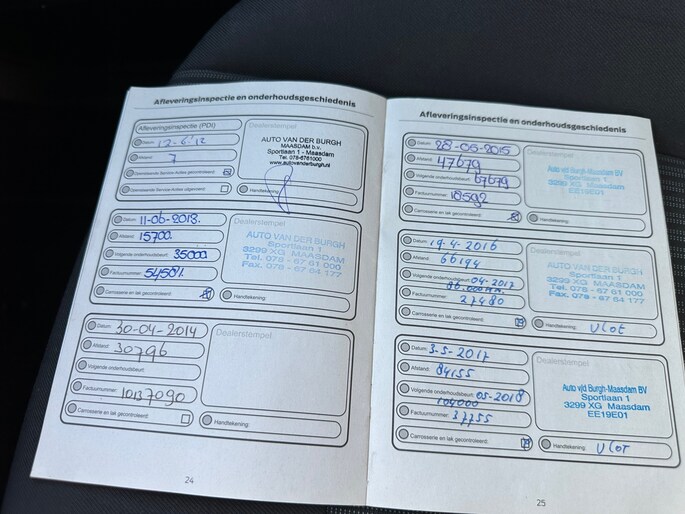 Afleveringsinspectie en onderhoudsgeschiedenis
Afleveringsinspectie (PDI)
Datum: 12-6-'12
Afstand: 7
Openstaande Service-Acties gecontroleerd:
Openstaande Service-Acties uitgevoerd:
Dealerstempel
AUTO VAN DER BURGH
MAASDAM b.v.
Sportlaan 1 - Maasdam
Tel. 078-6761000
www.autovanderburgh.nl
Handtekening:
Datum: 11-06-2013.
Afstand: 15700.
Volgende onderhoudsbeurt: 35000.
Factuurnummer:
Carrosserie en lak gecontroleerd:
Dealerstempel
AUTO VAN DER BURGH
Sportlaan 1
3299 XG MAASDAM
Tel. 078 - 67 61 000
Fax. 078 - 67 64 177
Handtekening:
Datum: 30-04-2014
Afstand: 30796
Volgende onderhoudsbeurt:
Factuurnummer: 10137090
Carrosserie en lak gecontroleerd:
Dealerstempel
Handtekening:
24
Afleveringsinspectie en onderhoudsgeschiedenis
Datum: 28-05-2015
Afstand: 47679
Volgende onderhoudsbeurt: 67679
Factuurnummer: 18592
Carrosserie en lak gecontroleerd:
Dealerstempel
Auto v/d Burgh-Maasdam BV
Sportlaan 1
3299 XG Maasdam
EE19E01
Handtekening:
Datum: 19-4-2016
Afstand: 66194
Volgende onderhoudsbeurt: 04-2017
Factuurnummer: 27480
Carrosserie en lak gecontroleerd:
Dealerstempel
AUTO VAN DER BURGH
Sportlaan 1
3299 XG MAASDAM
Tel. 078 - 67 61 000
Fax. 078 - 67 64 177
Handtekening: Vlot
Datum: 3-5-2017
Afstand: 84155
Volgende onderhoudsbeurt: 05-2018
104000
Factuurnummer: 37755
Carrosserie en lak gecontroleerd:
Dealerstempel
Auto v/d Burgh-Maasdam BV
Sportlaan 1
3299 XG Maasdam
EE19E01
Handtekening: Vlot
25